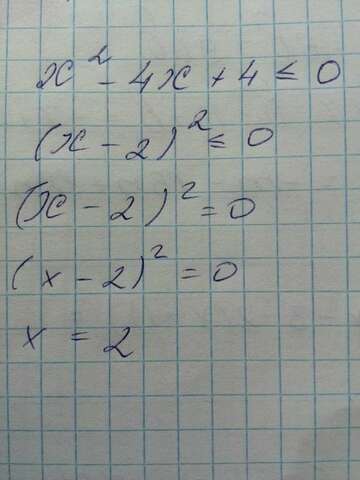 x² - 4x + 4 ≤ 0
(x - 2)² ≤ 0
(x - 2)² = 0
(x - 2)² = 0
x = 2